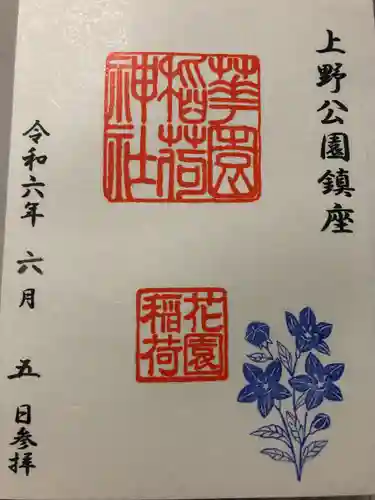 上野公園鎮座
華園
稲荷
神社
花園
稲荷
令和六年 六月 五 日参拝